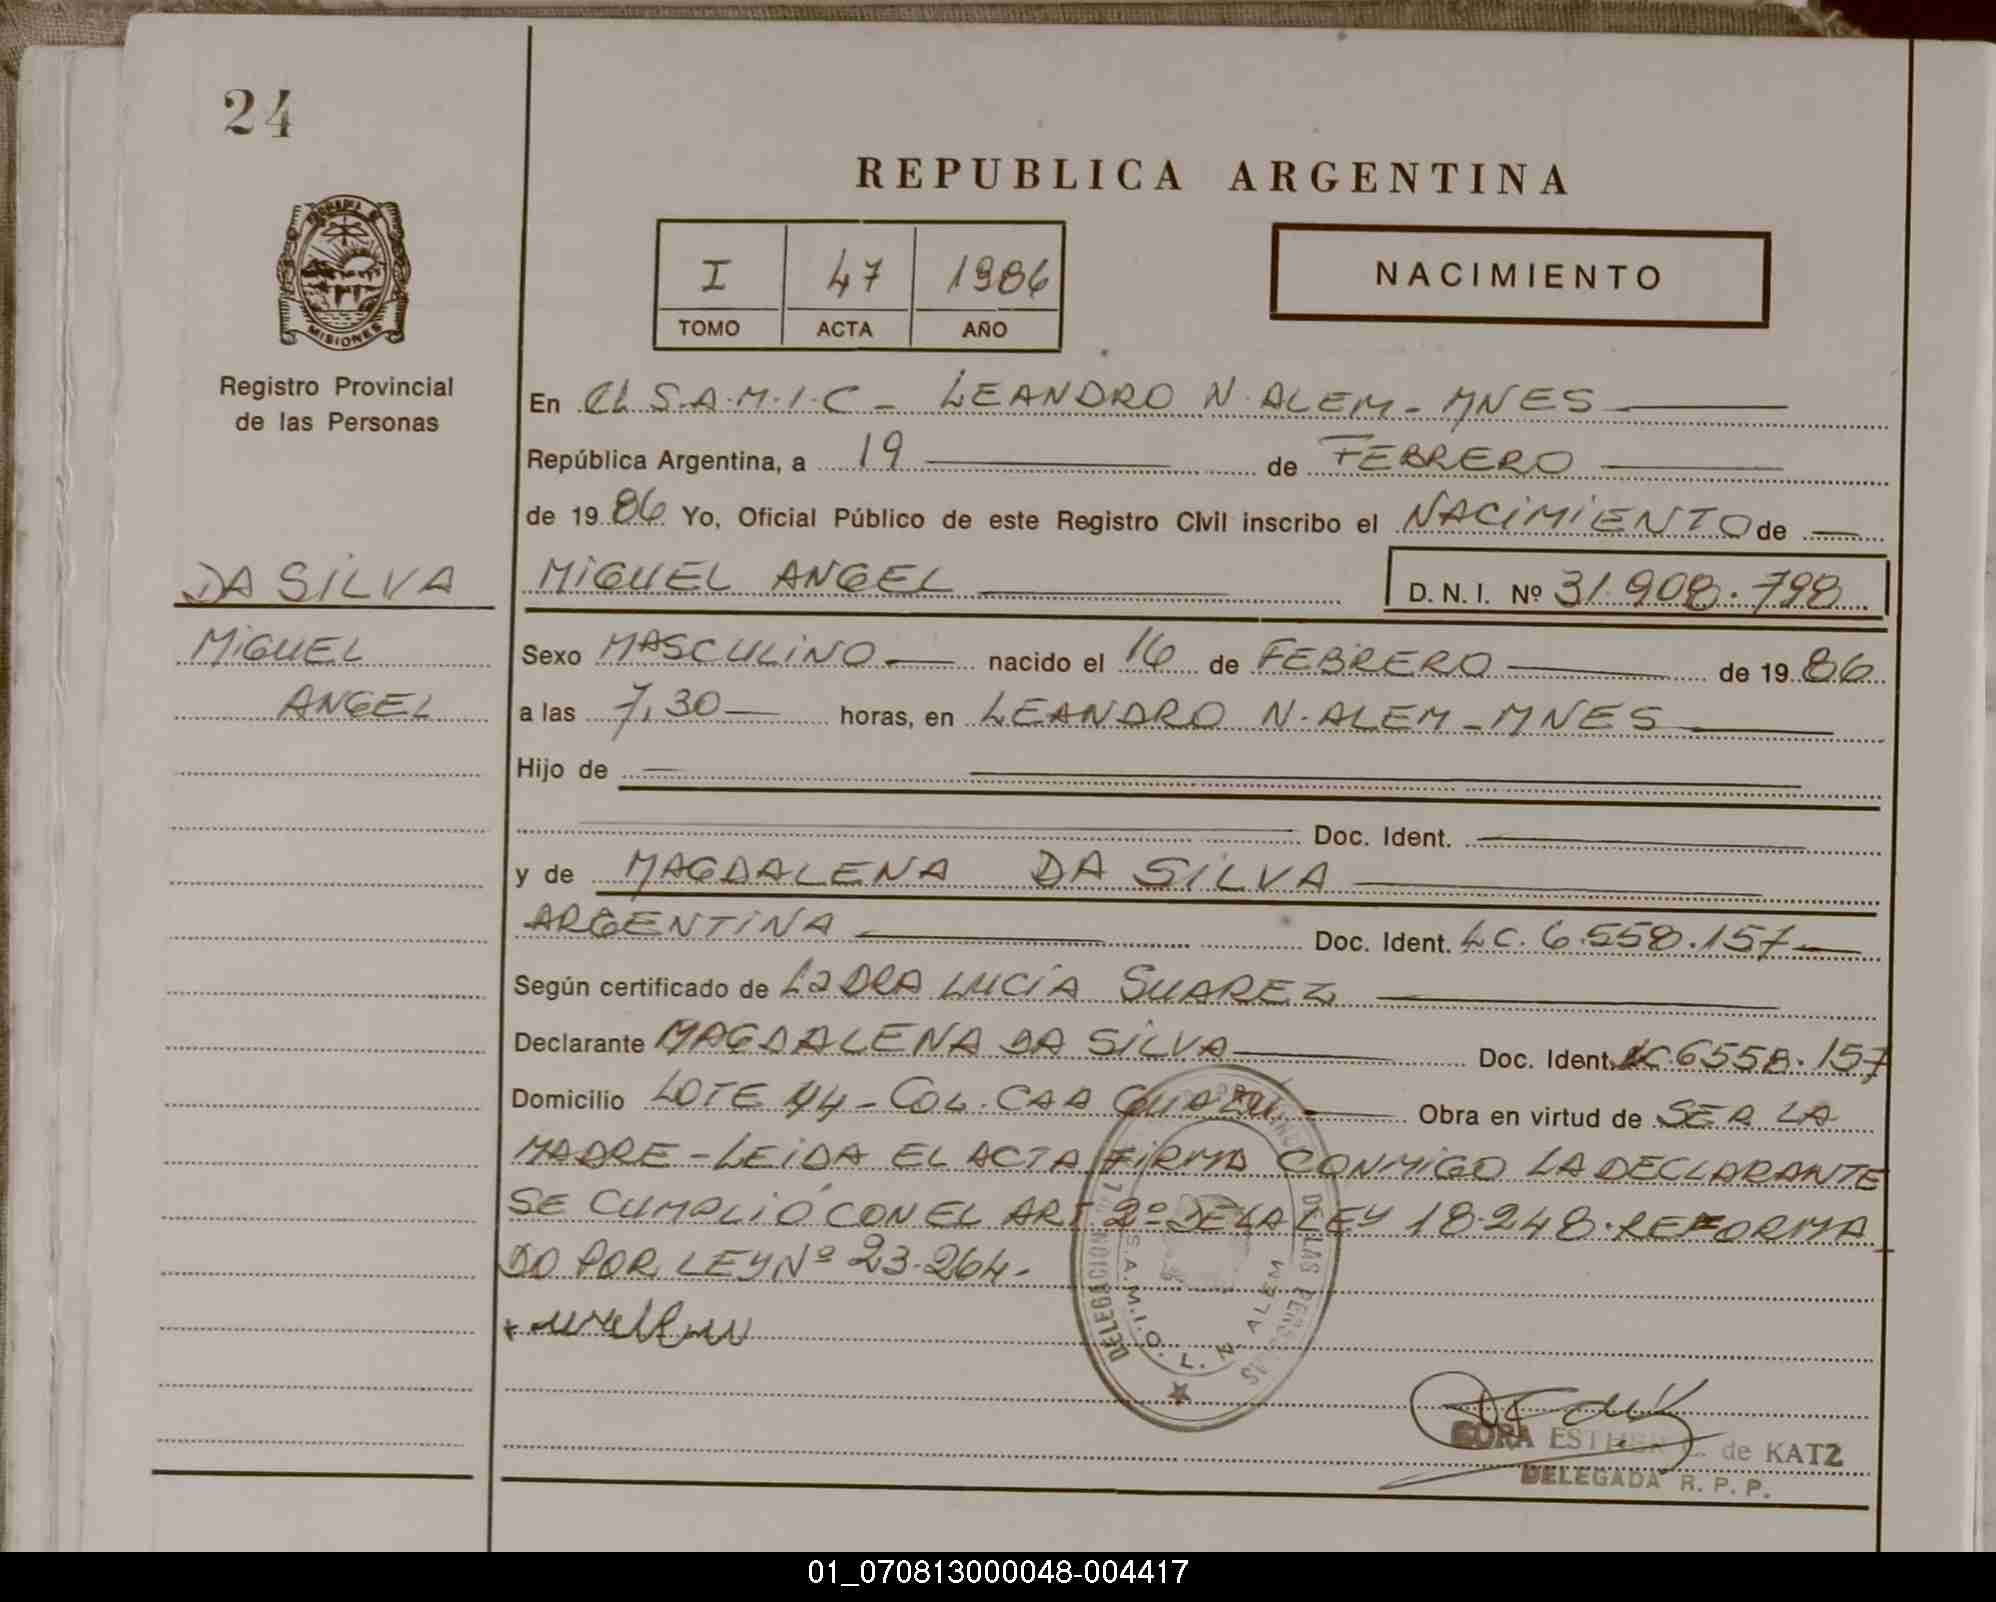 24
REPUBLICA ARGENTINA
I 47 1986
TOMO ACTA AÑO
NACIMIENTO
MISIONES
Registro Provincial
de las Personas
DA SILVA
MIGUEL
ANGEL
En EL S.A.M.I.C - LEANDRO N. ALEM - MNES
República Argentina, a 19 de FEBRERO
de 1986 Yo, Oficial Público de este Registro Civil inscribo el NACIMIENTO de
MIGUEL ANGEL D.N.I. Nº 31.908.798
Sexo MASCULINO nacido el 16 de FEBRERO de 1986
a las 7,30 horas, en LEANDRO N. ALEM - MNES
Hijo de
Doc. Ident.
y de MAGDALENA DA SILVA
ARGENTINA Doc. Ident. LC. 6.558.157
Según certificado de La DRA LUCIA SUAREZ
Declarante MAGDALENA DA SILVA Doc. Ident. LC 6558.157
Domicilio LOTE 44 - COL. CAA GUAZU Obra en virtud de SER LA
MADRE - LEIDA EL ACTA FIRMA CONMIGO LA DECLARANTE
SE CUMPLIÓ CON EL ART 2º DE LA LEY 18.248. REFORMA
DO POR LEY Nº 23.264.
DELEGACION DE LAS PERSONAS
S.A.M.I.C. L. N. ALEM
ESTHER de KATZ
DELEGADA R. P. P.
01_070813000048-004417